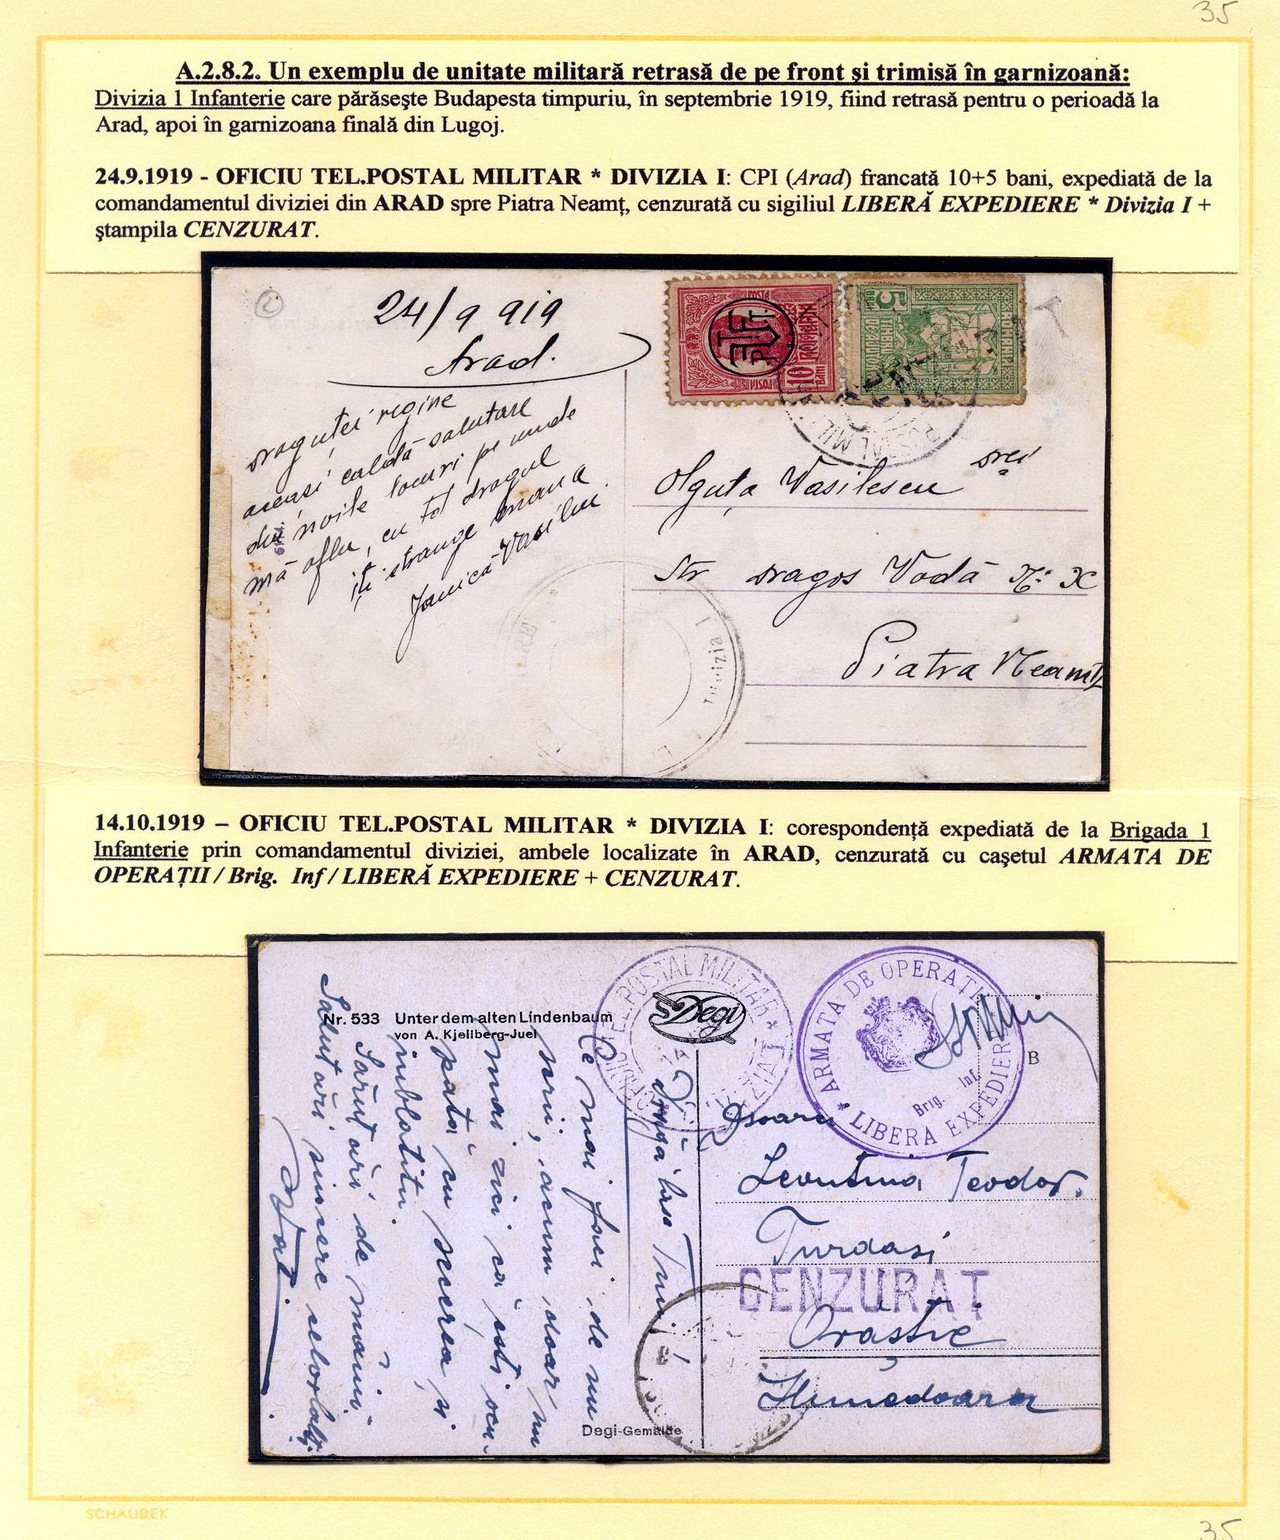 35
A.2.8.2. Un exemplu de unitate militară retrasă de pe front şi trimisă în garnizoană:
Divizia 1 Infanterie care părăseşte Budapesta timpuriu, în septembrie 1919, fiind retrasă pentru o perioadă la
Arad, apoi în garnizoana finală din Lugoj.
24.9.1919 - OFICIU TEL.POSTAL MILITAR * DIVIZIA I: CPI (Arad) francată 10+5 bani, expediată de la
comandamentul diviziei din ARAD spre Piatra Neamţ, cenzurată cu sigiliul LIBERĂ EXPEDIERE * Divizia I +
ştampila CENZURAT.
24/9 919
Arad.
Drăguţei regine
aceeaşi caldă salutare
din noile locuri pe unde
mă aflu, cu tot dragul
îţi strange mana
Janică Vasiliu.
POSTA
10 BANI
5
Drei
Olguţa Vasilescu
Str Dragos Vodă No: X
Piatra Neamtz
Divizia I
14.10.1919 – OFICIU TEL.POSTAL MILITAR * DIVIZIA I: corespondenţă expediată de la Brigada 1
Infanterie prin comandamentul diviziei, ambele localizate în ARAD, cenzurată cu caşetul ARMATA DE
OPERAŢII / Brig. Inf / LIBERĂ EXPEDIERE + CENZURAT.
Nr. 533 Unter dem alten Lindenbaum
von A. Kjellberg-Juel
Degi
OFICIU TEL. POSTAL MILITAR * DIVIZIA I
ARMATA DE OPERATII
Brig. Inf.
* LIBERA EXPEDIERE
B
Ce mai faci de nu
scrii, acum doar nu
mai zici că eşti ocu-
pată cu
publatitu.
Sărutări de mâini
Salutări sincere celorlalţi
Leontina Teodor.
Turdasi
CENZURAT
Orastie
Hunedoara
Degi-Gemälde
SCHAUBEK
35